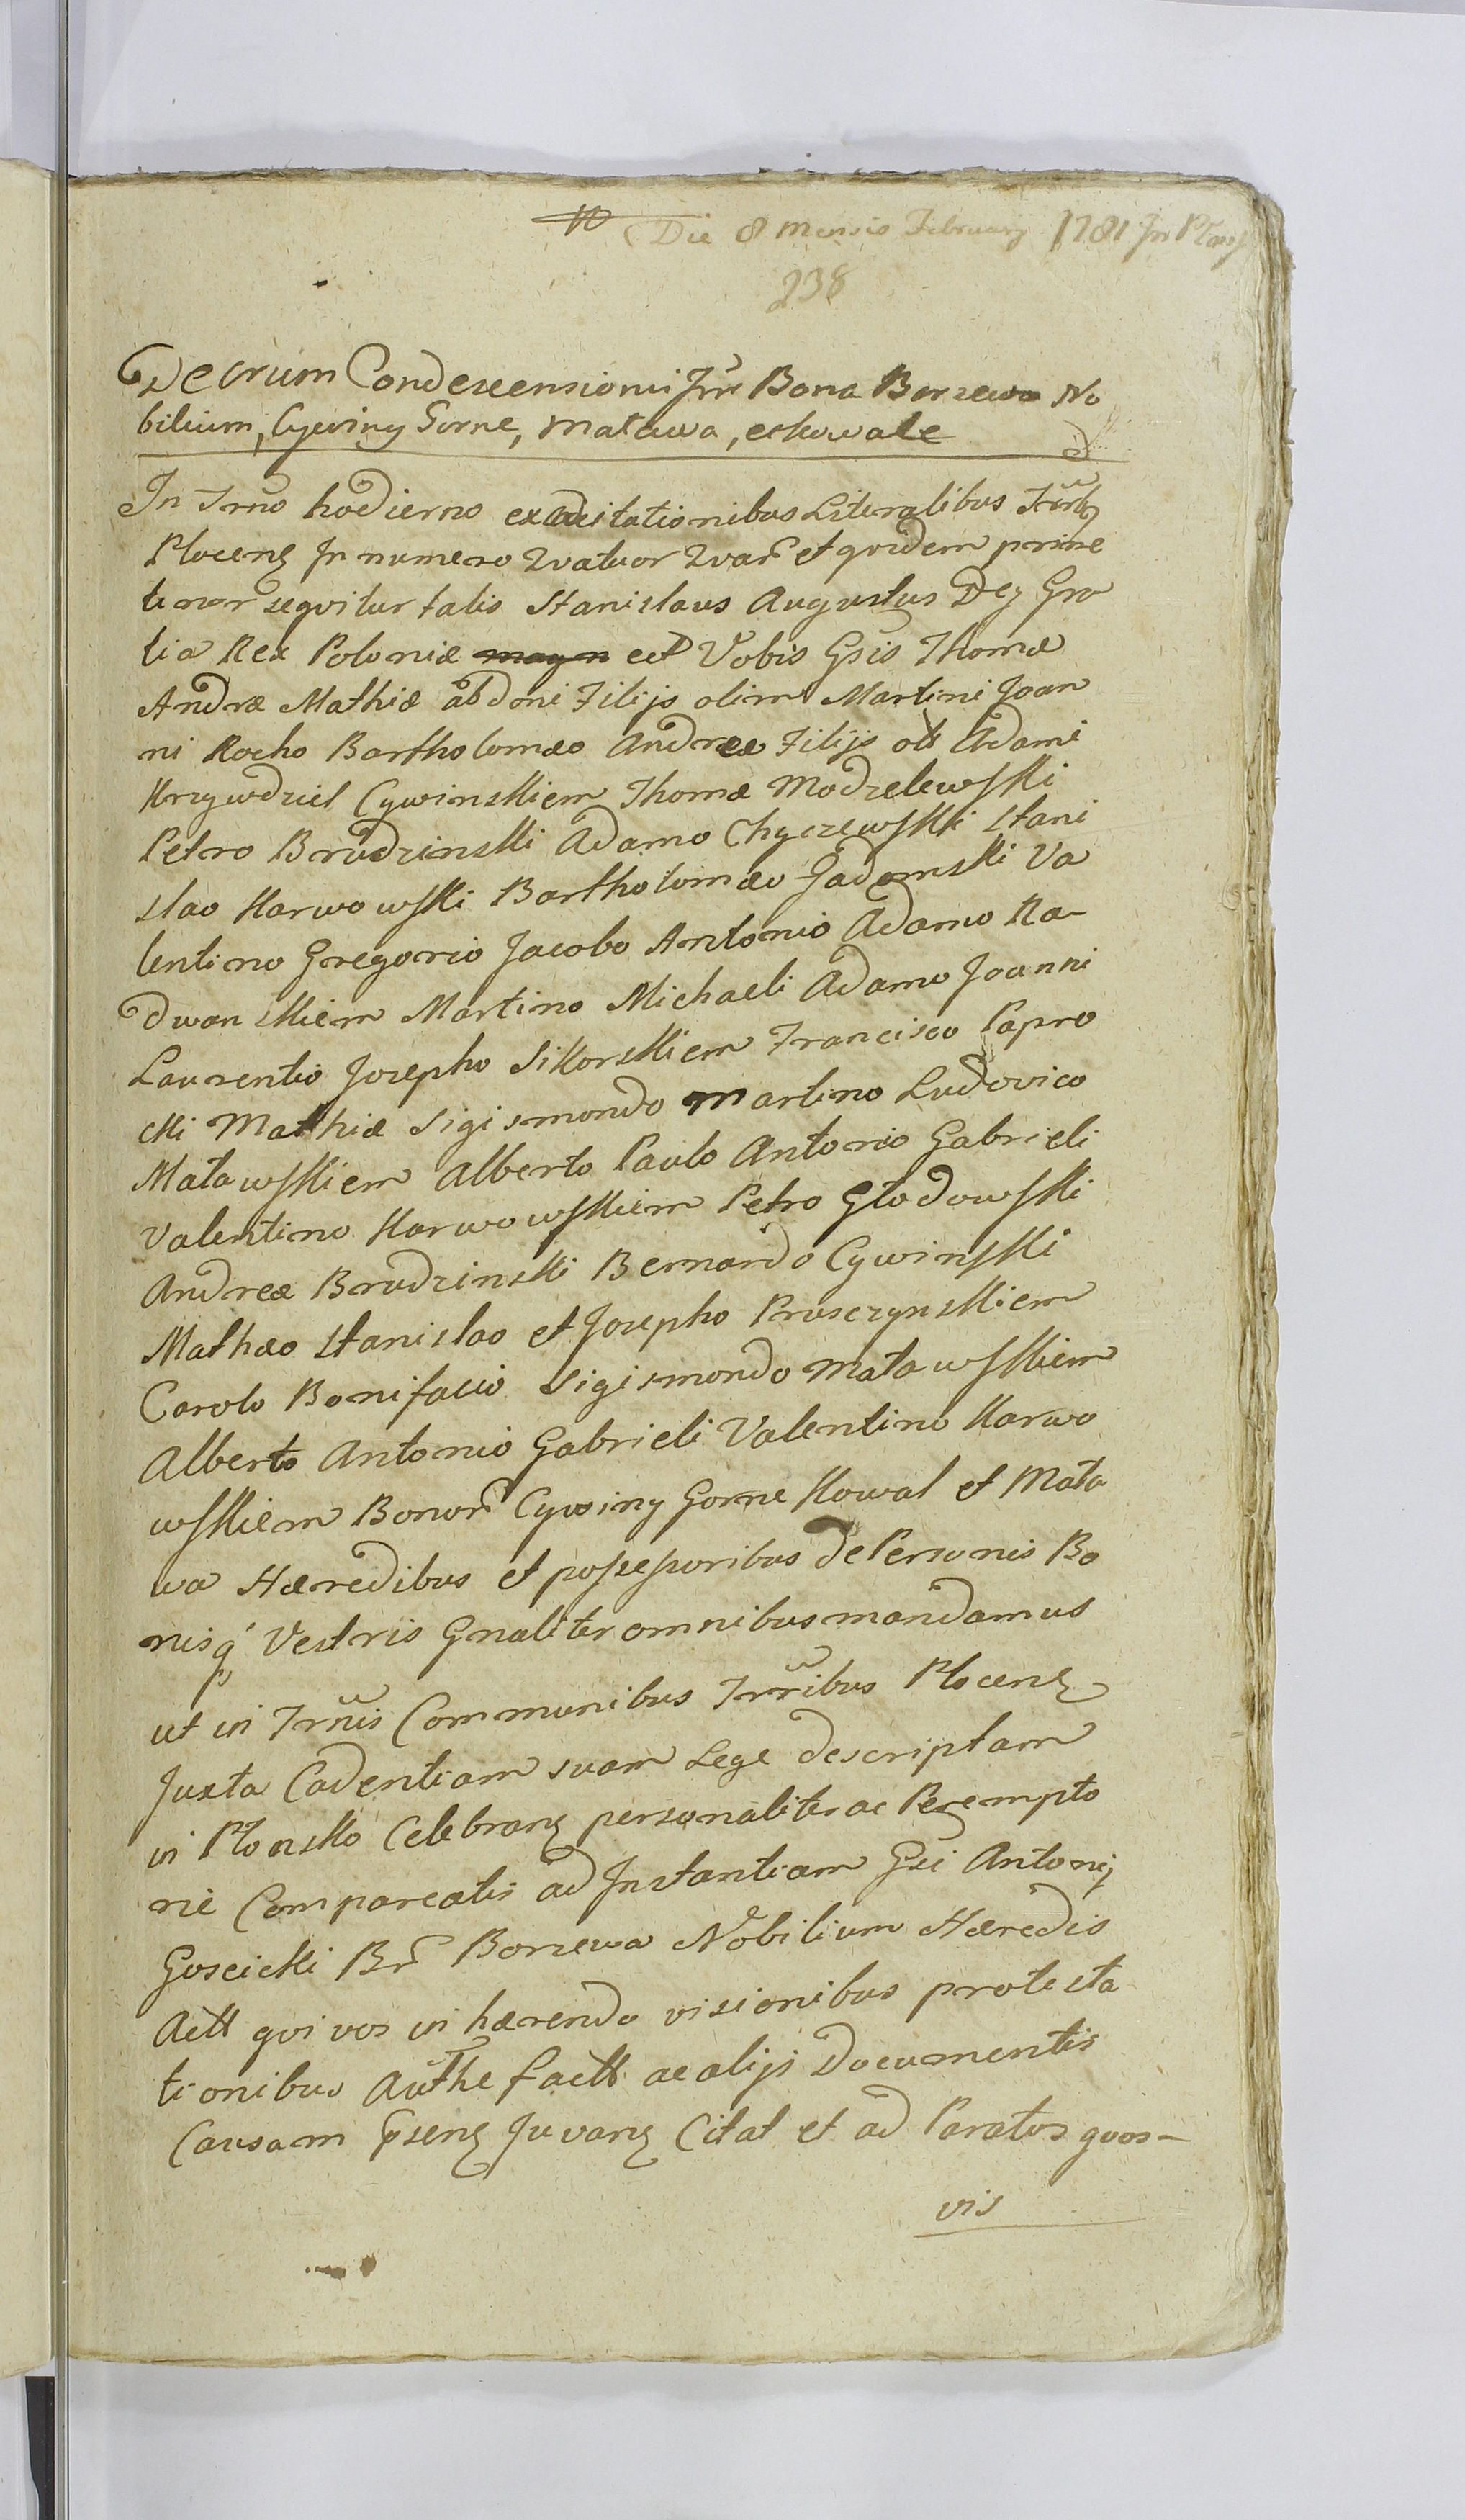 Die 8 mensis February 1781 In Płoń
238
Decrum Condescensionis Inr Bona Borzewo No
bilium, Cywiny Gorne, Matawa, et Kowale
In Trno hodierno ex Citationibus Literalibus Trrlbs
Plocens In numero Quatuor Quar et quidem primæ
tenor sequitur talis Stanislaus Augustus Dej Gra
tia Rex Poloniæ ect Vobis Gsis Thomæ
Andræ Mathiæ abdoni Filijs olim Martini Joan
ni Rocho Bartholomæo Andreæ Filijs olt Adami
Krzywdziel Cywinskiem Thomæ Modzelewski
Petro Brudzinski Adamo Chyczewski Stani
slao Karwowski Bartholomæo Jadomski Va
lentino Gregorio Jacobo Antonio Adamo Ra-
dwanskiem Martino Michaeli Adamo Joanni
Laurentio Josepho Sikorskiem Francisco Papro
cki Mathiæ Sigismondo Martino Ludovico
Matawskiem Alberto Paulo Antonio Gabrieli
Valentino Karwowskiem Petro Głodowski
Andreæ Brudzinski Bernardo Cywinski
Mathæo Stanislao et Josepho Prusczynskiem
Carolo Bonifacio Sigismondo Matawskiem
Alberto Antonio Gabrieli Valentino Karwo
wskiem Bonor Cywiny Gorne Kowal et Mata
wa Hæredibus et possessoribus de Personis Bo
nisq Vestris Gnaliter omnibus mandamus
ut in Trnis Communibus Trribus Plocens
Juxta Cadentiam suam Lege descriptam
in Płonsko Celebrans personaliter ac Perempto
rie Compareatis ad Instantiam Gsi Antonij
Goscicki Br Borzewa Nobilium Hæredis
Actt qui vos in hærendo visionibus protesta
tionibus Authe factt ac alijs Documentis
Causam Psens Juvans Citat et ad Paratos quos-
vis